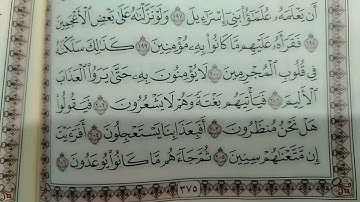 أَن يَعْلَمَهُۥ عُلَمَٰٓؤُا۟ بَنِىٓ إِسْرَٰٓءِيلَ ١٩٧ وَلَوْ نَزَّلْنَٰهُ عَلَىٰ بَعْضِ ٱلْأَعْجَمِينَ
١٩٨ فَقَرَأَهُۥ عَلَيْهِم مَّا كَانُوا۟ بِهِۦ مُؤْمِنِينَ ١٩٩ كَذَٰلِكَ سَلَكْنَٰهُ
فِى قُلُوبِ ٱلْمُجْرِمِينَ ٢٠٠ لَا يُؤْمِنُونَ بِهِۦ حَتَّىٰ يَرَوُا۟ ٱلْعَذَابَ
ٱلْأَلِيمَ ٢٠١ فَيَأْتِيَهُم بَغْتَةً وَهُمْ لَا يَشْعُرُونَ ٢٠٢ فَيَقُولُوا۟
هَلْ نَحْنُ مُنظَرُونَ ٢٠٣ أَفَبِعَذَابِنَا يَسْتَعْجِلُونَ ٢٠٤ أَفَرَءَيْتَ
إِن مَّتَّعْنَٰهُمْ سِنِينَ ٢٠٥ ثُمَّ جَآءَهُم مَّا كَانُوا۟ يُوعَدُونَ ٢٠٦
٣٧٥